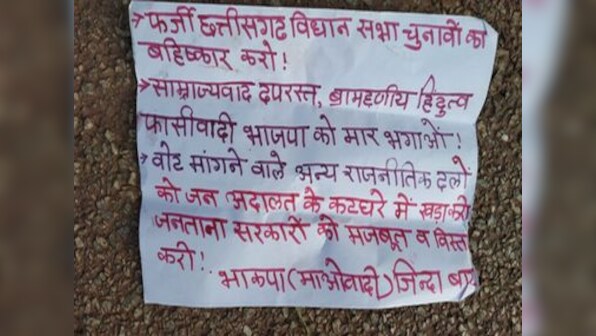 → फर्जी छत्तीसगढ़ विधान सभा चुनावों का
बहिष्कार करो!
→ साम्राज्यवाद दपरस्त, ब्रामहणीय हिंदुत्व
फासीवादी भाजपा को मार भगाओं!
→ वोट मांगने वाले अन्य राजनीतिक दलो
को जन अदालत के कटघरे में खड़ा करो
जनताना सरकारों को मजबूत व विस्त
करो!
भाकपा (माओवादी) जिन्दा बाद